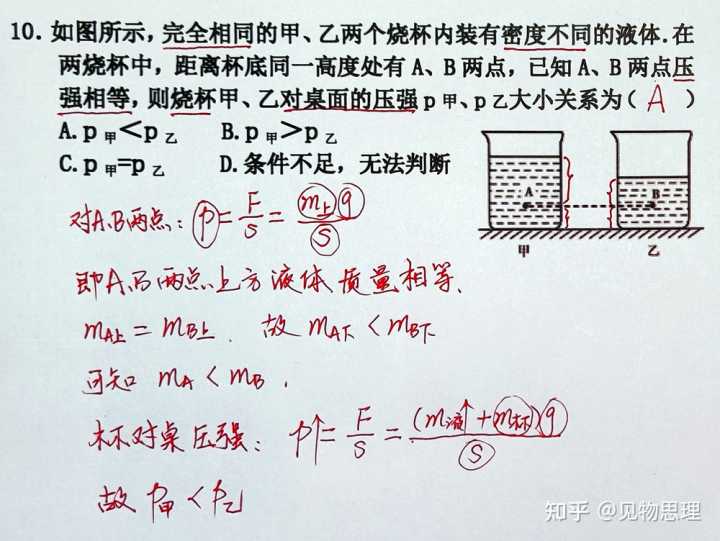 10. 如图所示,完全相同的甲、乙两个烧杯内装有密度不同的液体.在
两烧杯中,距离杯底同一高度处有 A、B 两点,已知 A、B 两点压
强相等,则烧杯甲、乙对桌面的压强 p 甲、p 乙大小关系为( A )
A. p 甲<p 乙 B. p 甲>p 乙
C. p 甲=p 乙 D. 条件不足,无法判断
A B
甲 乙
对A、B两点: p = F/S = m上g/S
即A、B两点上方液体质量相等、
mA上 = mB上. 故 mA下 < mB下
可知 mA < mB.
杯对桌压强: p↑ = F/S = (m液↑+m杯)g/S
故 p甲 < p乙
知乎 @见物思理